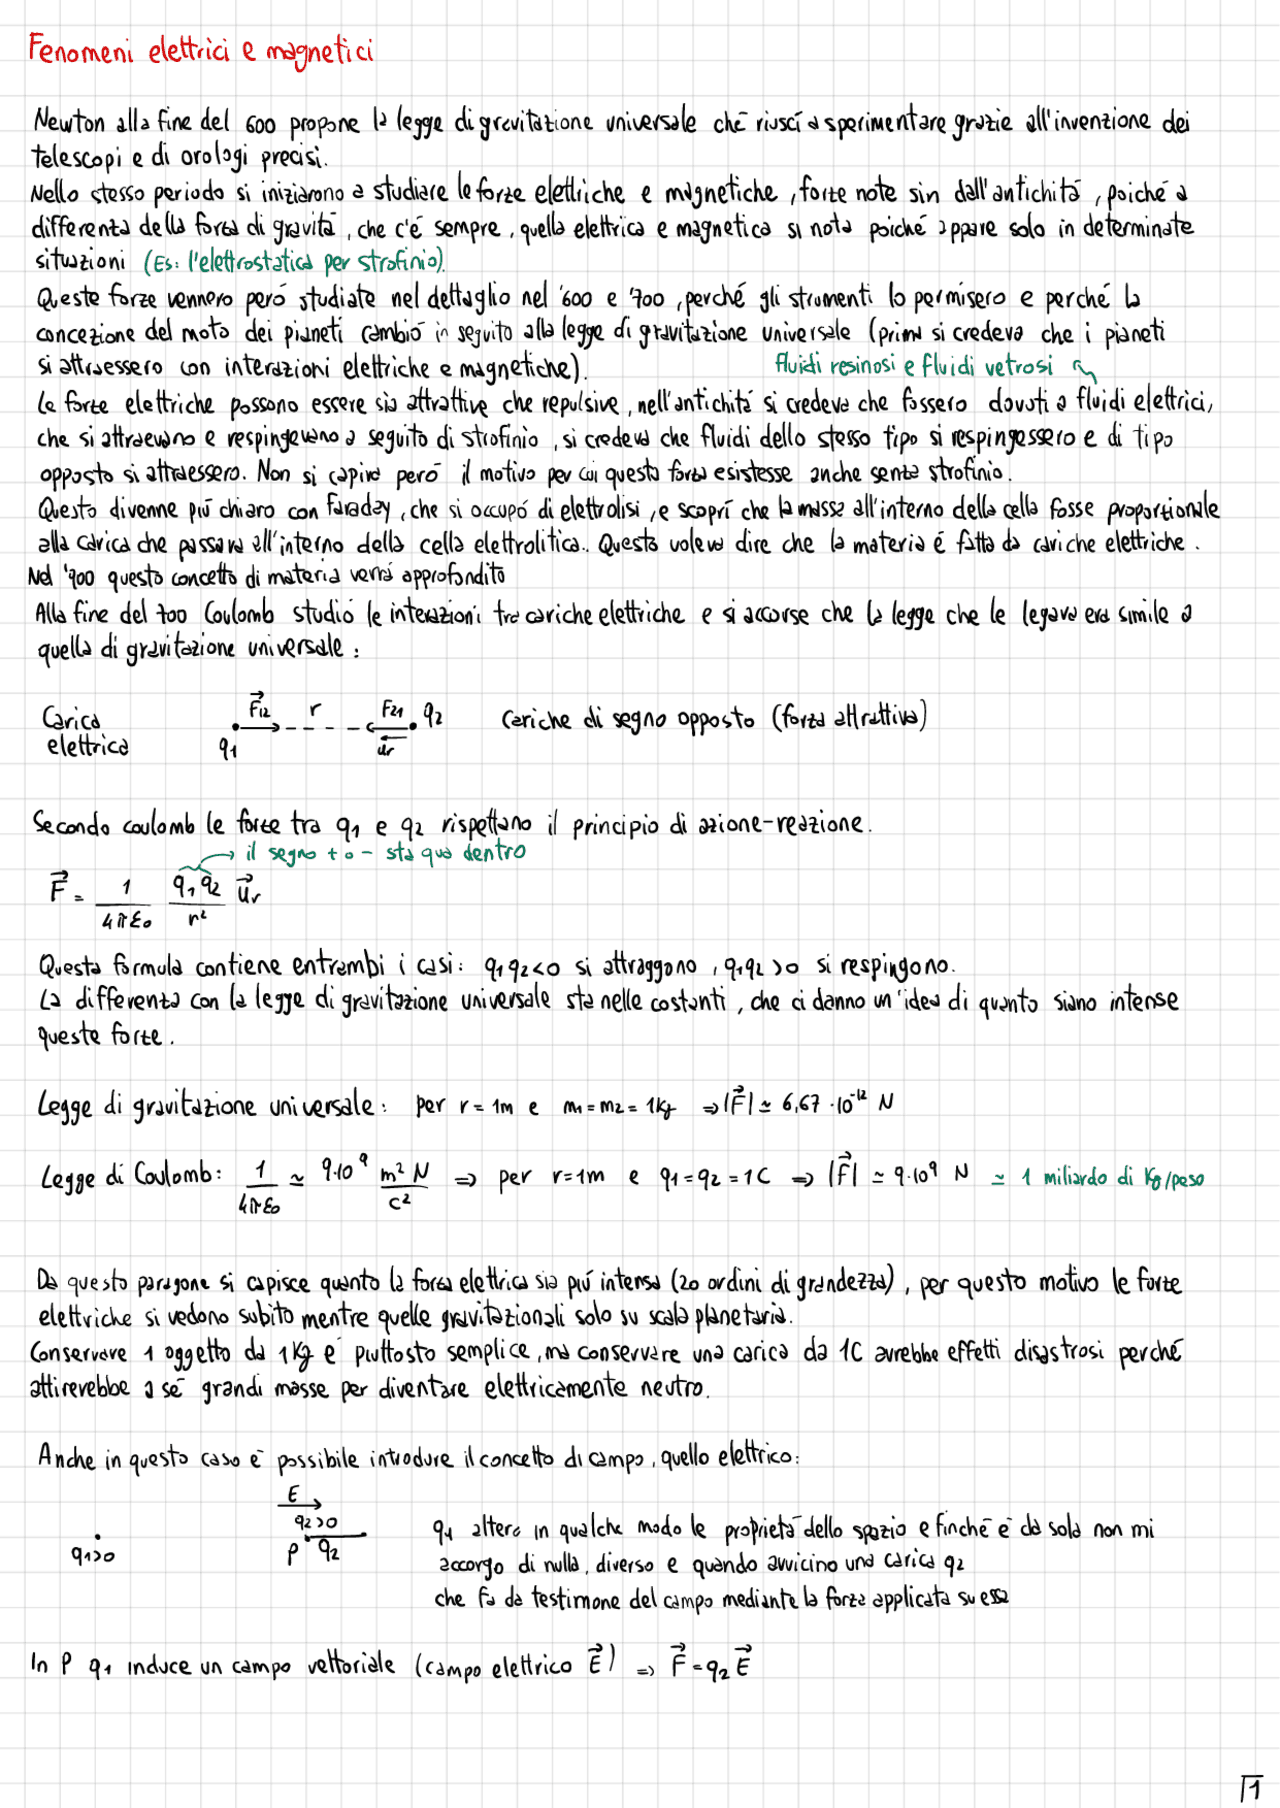 Fenomeni elettrici e magnetici
Newton alla fine del 600 propone la legge di gravitazione universale che riuscì a sperimentare grazie all'invenzione dei
telescopi e di orologi precisi.
Nello stesso periodo si iniziarono a studiare le forze elettriche e magnetiche, forze note sin dall'antichità, poiché a
differenza della forza di gravità, che c'é sempre, quella elettrica e magnetica si nota poiché appare solo in determinate
situazioni (Es: l'elettrostatica per strofinio).
Queste forze vennero peró studiate nel dettaglio nel '600 e '700, perché gli strumenti lo permisero e perché la
concezione del moto dei pianeti cambió in seguito alla legge di gravitazione universale (prima si credeva che i pianeti
si attraessero con interazioni elettriche e magnetiche).
fluidi resinosi e fluidi vetrosi
Le forze elettriche possono essere sia attrattive che repulsive, nell'antichitá si credeva che fossero dovuti a fluidi elettrici,
che si attraevano e respingevano a seguito di strofinio, si credeva che fluidi dello stesso tipo si respingessero e di tipo
opposto si attraessero. Non si capiva peró il motivo per cui questa forza esistesse anche senza strofinio.
Questo divenne piú chiaro con Faraday, che si occupó di elettrolisi, e scoprí che la massa all'interno della cella fosse proporzionale
alla carica che passava all'interno della cella elettrolitica. Questo voleva dire che la materia é fatta da cariche elettriche.
Nel '900 questo concetto di materia verrá approfondito
Alla fine del 700 Coulomb studió le interazioni tra cariche elettriche e si accorse che la legge che le legava era simile a
quella di gravitazione universale:
Carica elettrica F12 r F21 q2 ur q1 Cariche di segno opposto (forza attrattiva)
Secondo coulomb le forze tra q1 e q2 rispettano il principio di azione-reazione.
il segno + o - sta qua dentro
F⃗ = 1/(4πε0) q1q2/r² u⃗r
Questa formula contiene entrambi i casi: q1q2<0 si attraggono, q1q2>0 si respingono.
La differenza con la legge di gravitazione universale sta nelle costanti, che ci danno un'idea di quanto siano intense
queste forze.
Legge di gravitazione universale: per r=1m e m1=m2=1kg ⇒ |F⃗| ≃ 6,67·10⁻¹² N
Legge di Coulomb: 1/(4πε0) ≃ 9·10⁹ m²N/C² ⇒ per r=1m e q1=q2=1C ⇒ |F⃗| ≃ 9·10⁹ N ≃ 1 miliardo di Kg/peso
Da questo paragone si capisce quanto la forza elettrica sia piú intensa (20 ordini di grandezza), per questo motivo le forze
elettriche si vedono subito mentre quelle gravitazionali solo su scala planetaria.
Conservare 1 oggetto da 1Kg é piuttosto semplice, ma conservare una carica da 1C avrebbe effetti disastrosi perché
attirerebbe a sé grandi masse per diventare elettricamente neutro.
Anche in questo caso é possibile introdurre il concetto di campo, quello elettrico:
E
q2>0
q1>0 P q2
q1 altera in qualche modo le proprietá dello spazio e finché é da sola non mi
accorgo di nulla, diverso e quando avvicino una carica q2
che fa da testimone del campo mediante la forza applicata su essa
In P q1 induce un campo vettoriale (campo elettrico E⃗) ⇒ F⃗=q2E⃗
1